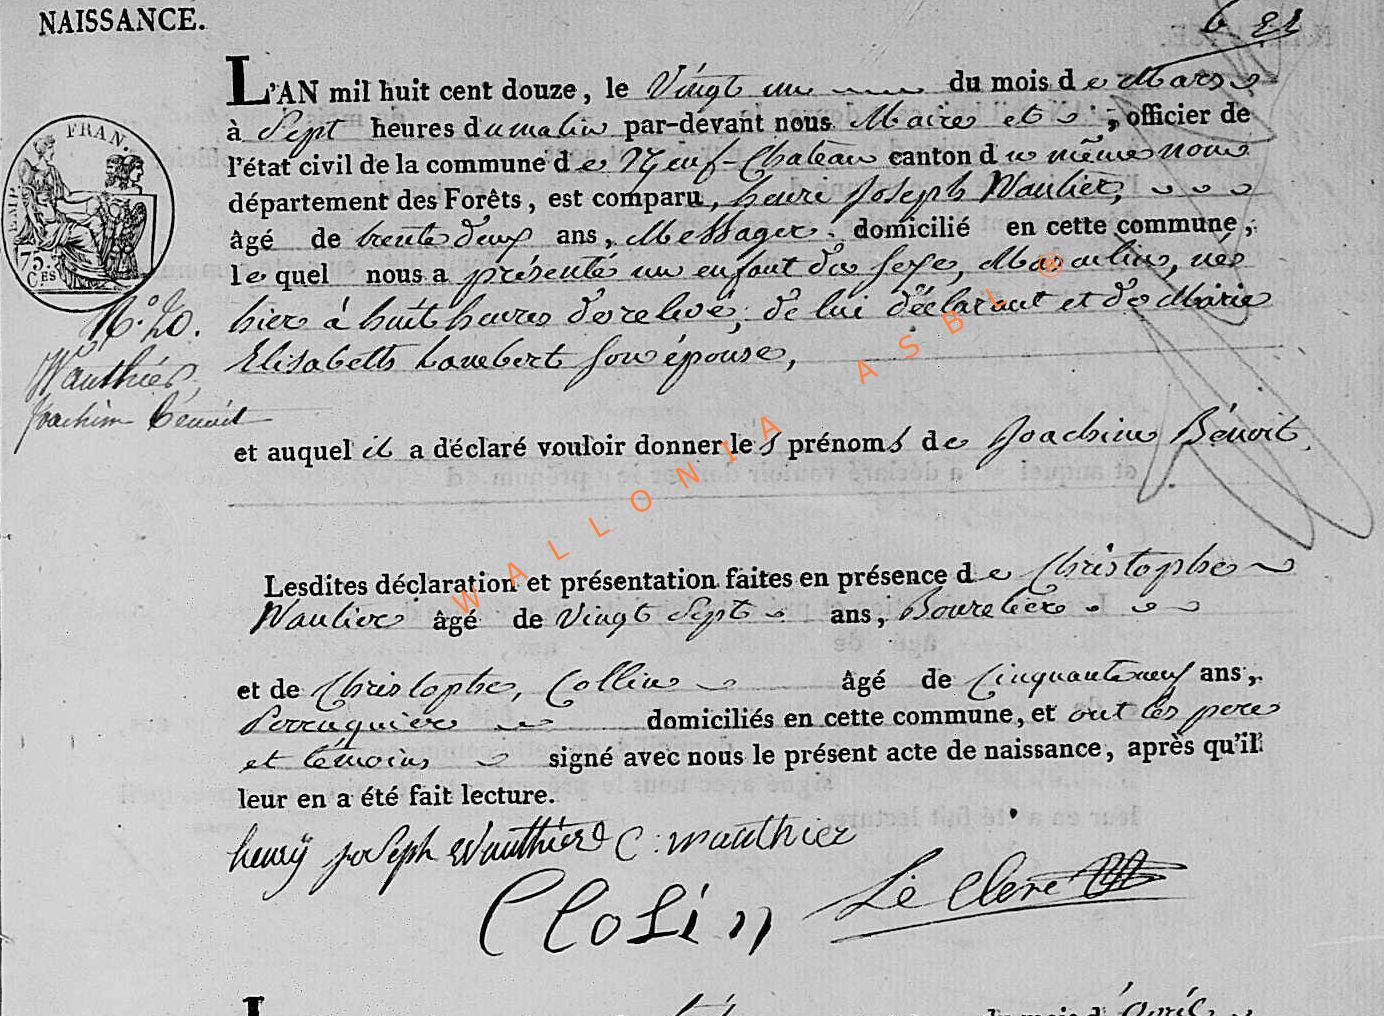 NAISSANCE.
6 21
L'AN mil huit cent douze, le Vingt un du mois de Mars
à Sept heures du matin par-devant nous Maire et, officier de
l'état civil de la commune de Neuf-Chateau canton du même nom
département des Forêts, est comparu, henri Joseph Waulier,
âgé de trente deux ans, Messager domicilié en cette commune,
lequel nous a présenté un enfant du sexe, Masculin, né
hier à huit heures de relevé, de lui déclarant et de Marie
Elisabeth Lambert son épouse,
et auquel il a déclaré vouloir donner les prénoms de Joachim Bénoit,
Lesdites déclaration et présentation faites en présence de Christophe
Waulier âgé de Vingt Sept ans, Bourelier
et de Christophe, Collin âgé de Cinquante neuf ans,
Perruquier domiciliés en cette commune, et ont les pere
et témoins signé avec nous le présent acte de naissance, après qu'il
leur en a été fait lecture.
henry joseph Wauthier C: wauthier
C Colin Le Clerc
FRAN.
75.
CES
N° 20.
Wauthier,
Joachim Bénoit
WALLONIA ASBL ©
L
du mois d'Avril